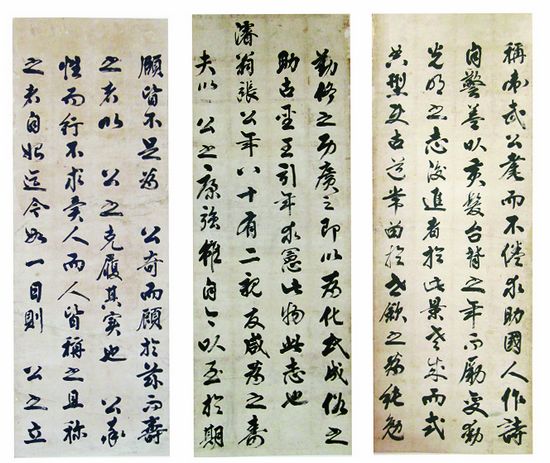 稱衛武公耄而不倦求助國人作詩
自警蓋以黃髮台背之年而勵交
光明之志後進者於此景老成而式
典型 古道 於 之爲 勉
勤修之功廣之即以爲化民成俗之
助古聖王引年求憲此物此志也
濬翁張公年八十有二親友咸爲之壽
夫以 公之康強雖自今以至於期
頤皆不足爲 公奇而顧於茲而壽
之者以 公之克履其實也 公率
性而行不求異人而人皆稱之且稱
之者自始迄今如一日則 公之立